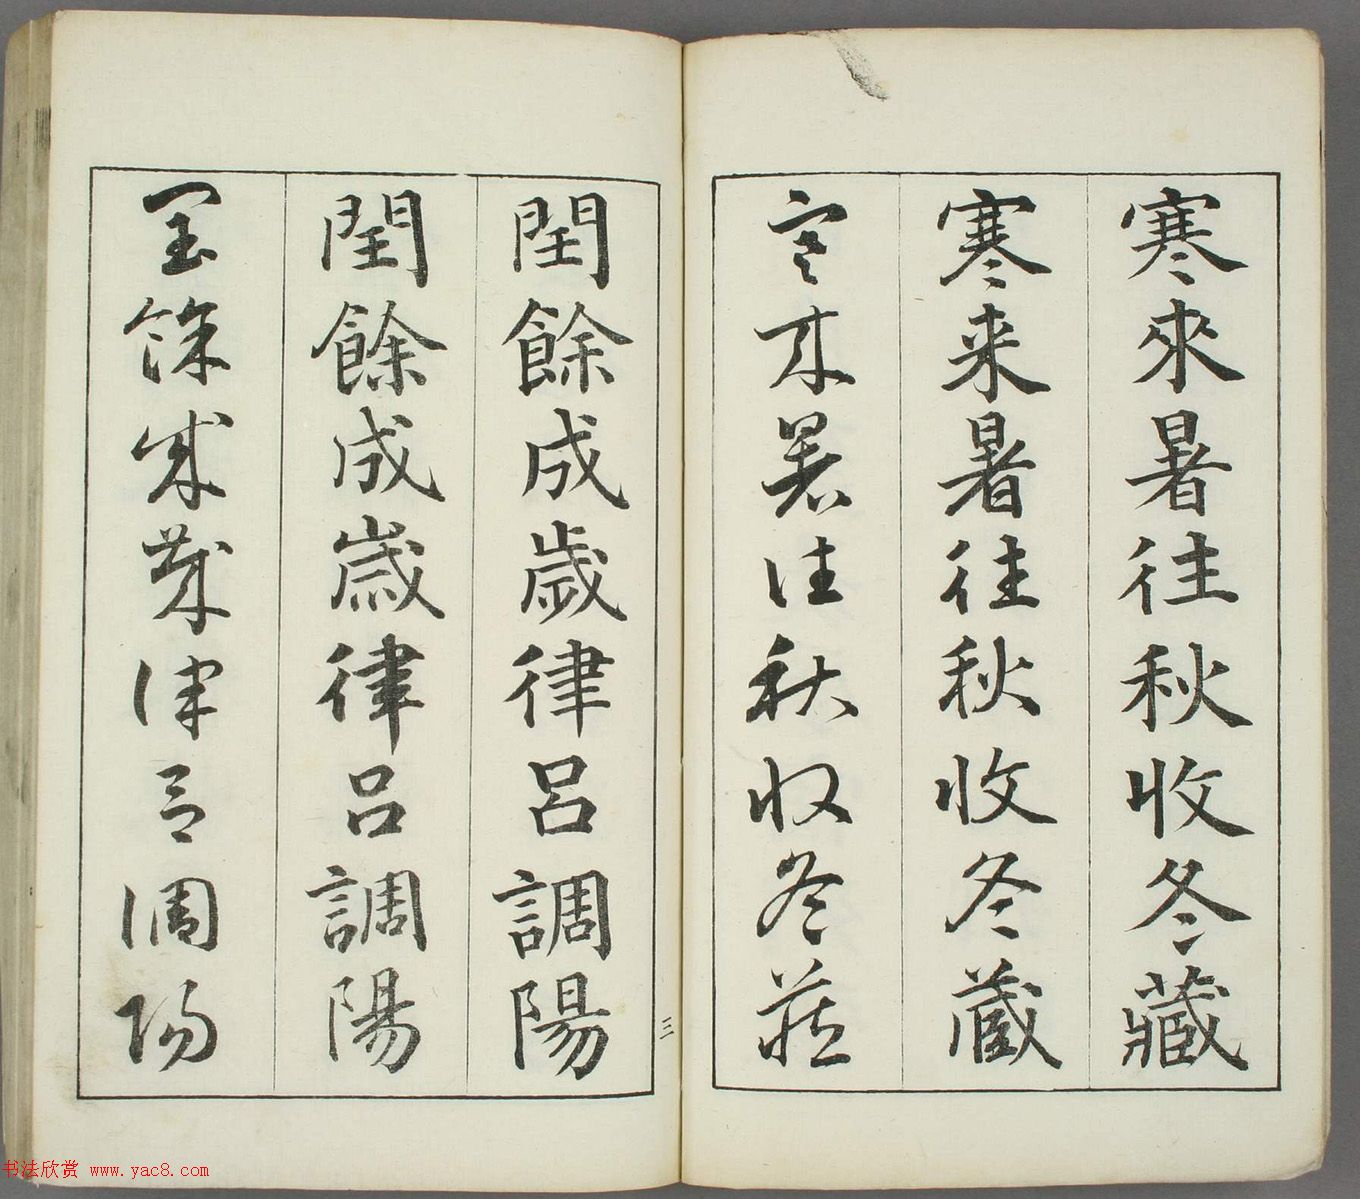 寒來暑往秋收冬藏
寒来暑往秋收冬蔵
寒来暑往秋收冬藏
三
閏餘成歲律呂調陽
閏餘成歳律呂調陽
閏餘成歲律呂調陽
书法欣赏 www.yac8.com